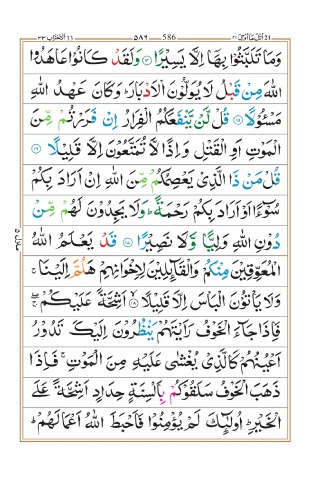 الاحزاب ٣٣ ٥٨٦ 586 اتل مآ اوحی ٢١
وَمَا تَلَبَّثُوْا بِهَآ اِلَّا يَسِيْرًا ۝١٤ وَلَقَدْ كَانُوْا عَاهَدُوا
اللّٰهَ مِنْ قَبْلُ لَا يُوَلُّوْنَ الْاَدْبَارَ ؕ وَكَانَ عَهْدُ اللّٰهِ
مَسْـُٔوْلًا ۝١٥ قُلْ لَّنْ يَّنْفَعَكُمُ الْفِرَارُ اِنْ فَرَرْتُمْ مِّنَ
الْمَوْتِ اَوِ الْقَتْلِ وَاِذًا لَّا تُمَتَّعُوْنَ اِلَّا قَلِيْلًا ۝١٦
قُلْ مَنْ ذَا الَّذِيْ يَعْصِمُكُمْ مِّنَ اللّٰهِ اِنْ اَرَادَ بِكُمْ
سُوْٓءًا اَوْ اَرَادَ بِكُمْ رَحْمَةً ؕ وَلَا يَجِدُوْنَ لَهُمْ مِّنْ
دُوْنِ اللّٰهِ وَلِيًّا وَّلَا نَصِيْرًا ۝١٧ قَدْ يَعْلَمُ اللّٰهُ
الْمُعَوِّقِيْنَ مِنْكُمْ وَالْقَآئِلِيْنَ لِاِخْوَانِهِمْ هَلُمَّ اِلَيْنَا ۚ
وَلَا يَاْتُوْنَ الْبَاْسَ اِلَّا قَلِيْلًا ۝١٨ اَشِحَّةً عَلَيْكُمْ ۖۚ
فَاِذَا جَآءَ الْخَوْفُ رَاَيْتَهُمْ يَنْظُرُوْنَ اِلَيْكَ تَدُوْرُ
اَعْيُنُهُمْ كَالَّذِيْ يُغْشٰى عَلَيْهِ مِنَ الْمَوْتِ ۚ فَاِذَا
ذَهَبَ الْخَوْفُ سَلَقُوْكُمْ بِاَلْسِنَةٍ حِدَادٍ اَشِحَّةً عَلَى
الْخَيْرِ ؕ اُولٰٓئِكَ لَمْ يُؤْمِنُوْا فَاَحْبَطَ اللّٰهُ اَعْمَالَهُمْ ؕ
منزل ٥